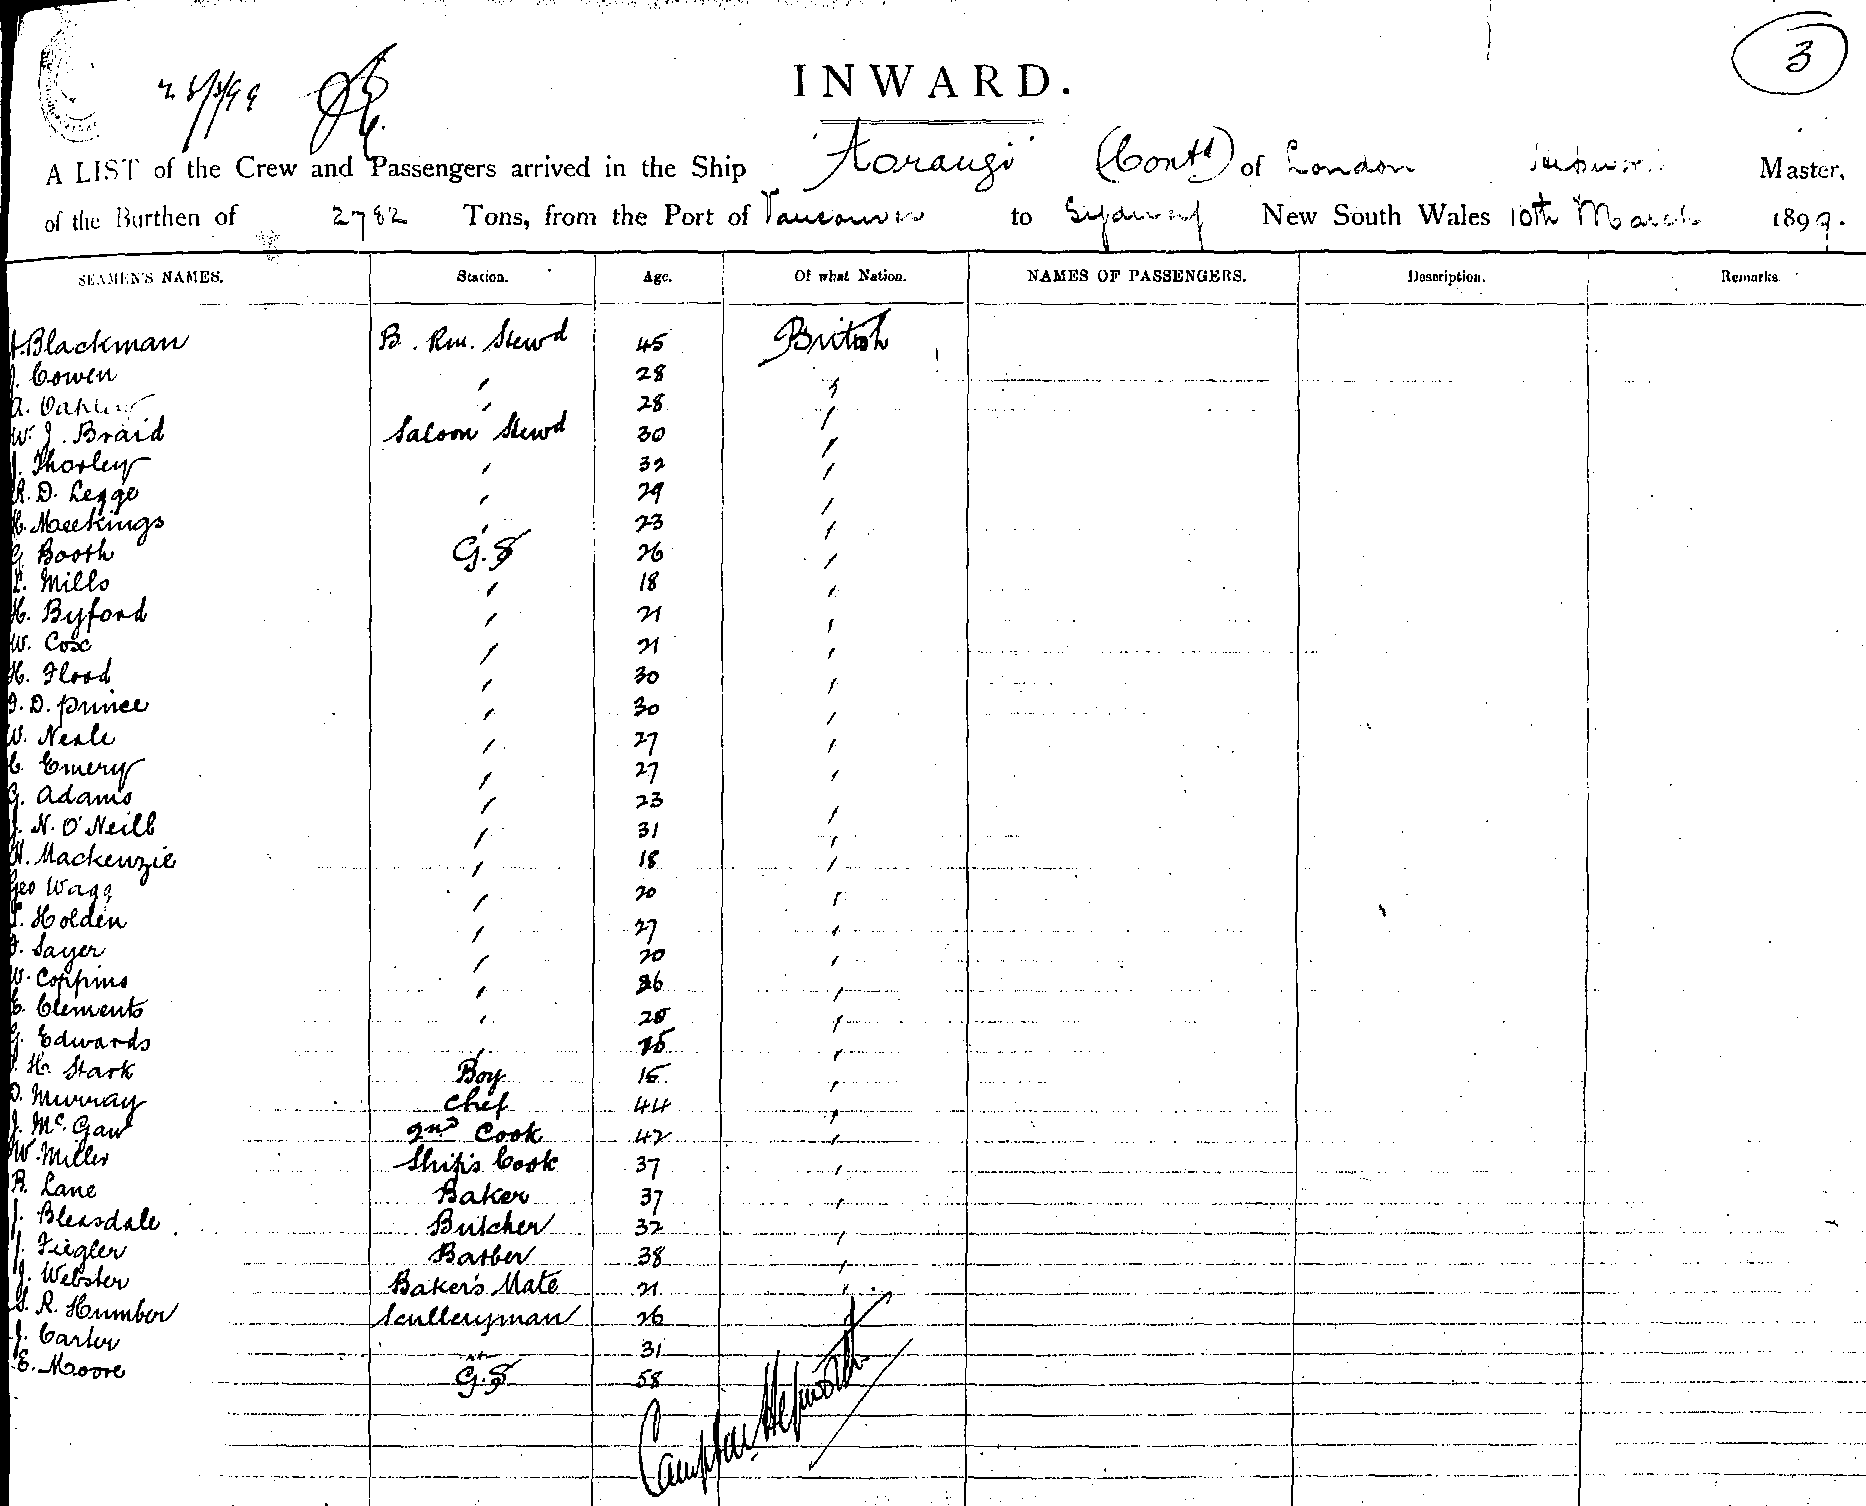 3
INWARD.
A LIST of the Crew and Passengers arrived in the Ship Aorangi (Contd) of London Master,
of the Burthen of 2782 Tons, from the Port of Vancouver to Sydney New South Wales 10th March 1899.
SEAMEN'S NAMES. Station. Age. Of what Nation. NAMES OF PASSENGERS. Description. Remarks
Blackman B. Rm. Stewd 45 British
J. Cowen " 28 "
A. " 28 "
W. J. Braid Saloon Stewd 30 "
J. Thorley " 32 "
R. D. Legge " 29 "
H. Meekings " 23 "
G. Booth G.S 26 "
L. Mills " 18 "
H. Byford " 21 "
W. Cox " 21 "
H. Flood " 30 "
D. Prince " 30 "
W. Neale " 27 "
C. Emery " 27 "
G. Adams " 23 "
J. N. O'Neill " 31 "
H. Mackenzie " 18 "
Geo Wagg " 20 "
Holden " 27 "
F. Sayer " 20 "
W. Coppins " 26 "
C. Clements " "
G. Edwards " "
H. Stark Boy 15 "
D. Murray Chef 44 "
J. McGaw 2nd Cook 42 "
W. Miller Ship's Cook 37 "
R. Lane Baker 37 "
J. Bleasdale Butcher 32 "
J. Fiegler Barber 38 "
J. Webster Baker's Mate 21 "
S. R. Humber Sculleryman 26 "
J. Carter 31
E. Moore G.S 58
Campbell Hepworth